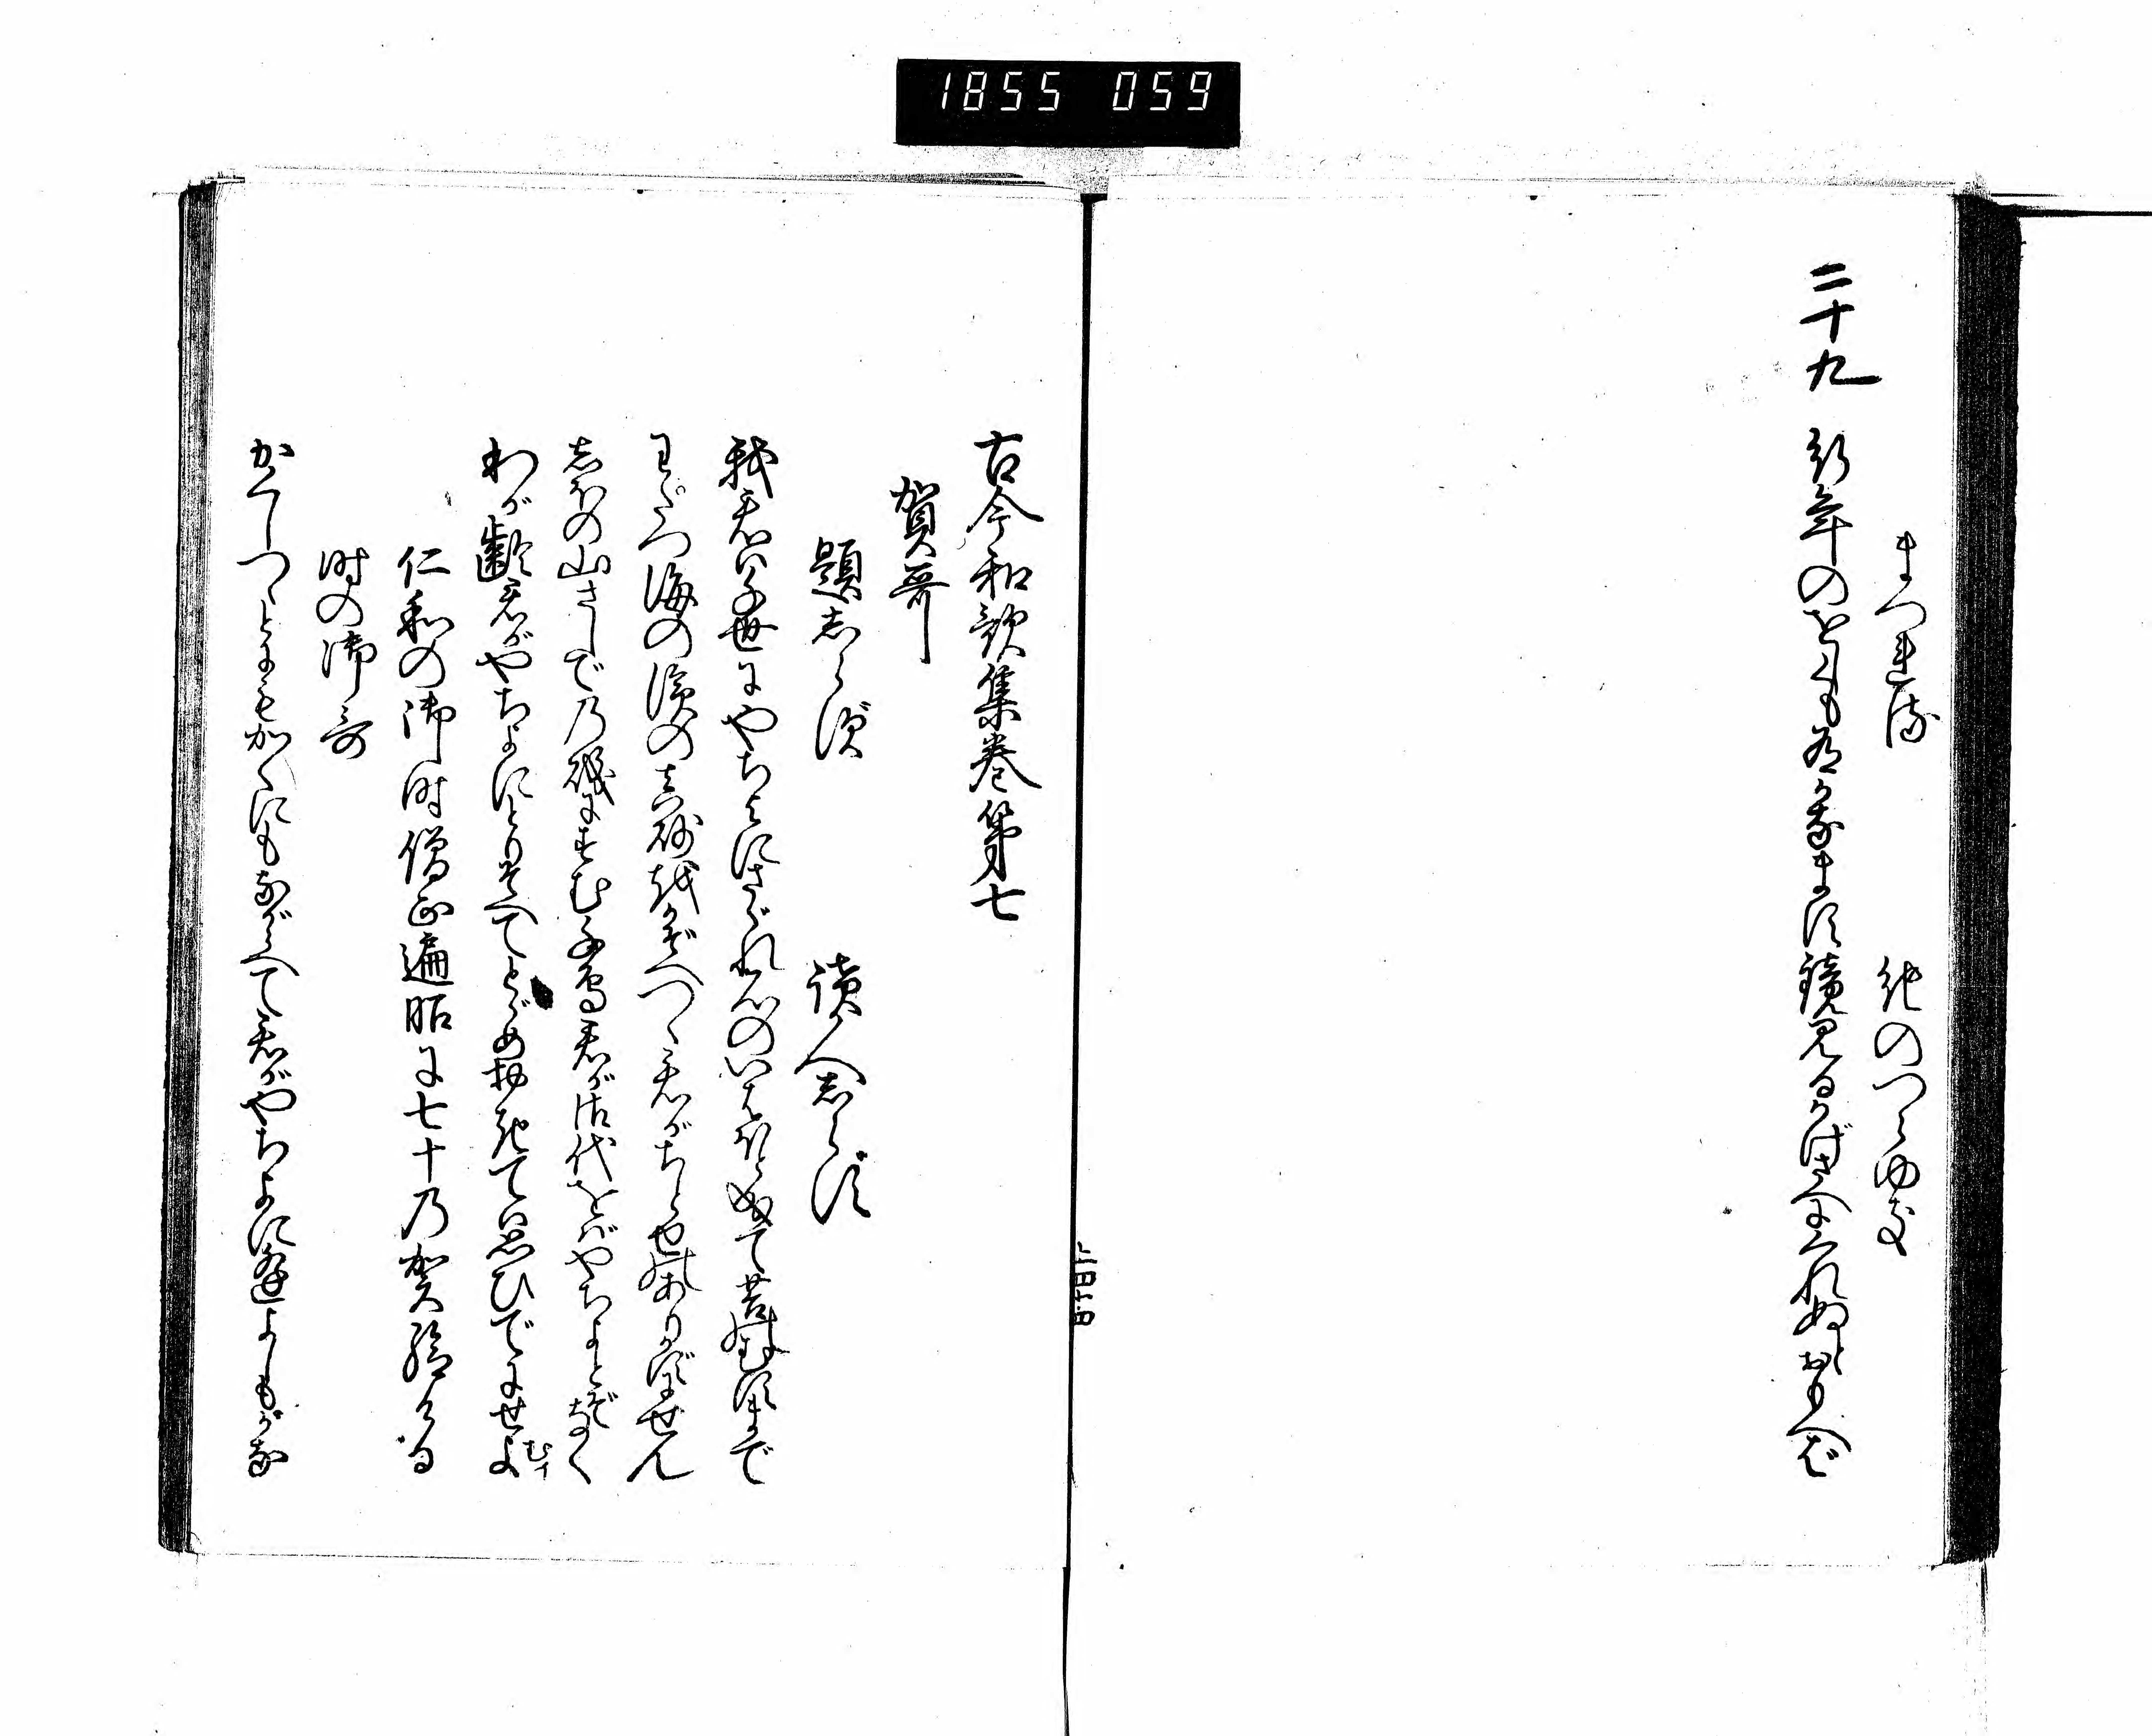 1855 059
まつれる　紀のつらゆき
二十九
行年のをしくも有かなます鏡見るかげさへにくれぬとおもへば
古今和歌集巻第七
賀哥
題志らず　読人志らず
我君は千世にやちよにさゞれ石のいはほと成て苔のむすまで
わたつ海の濱の真砂をかぞへつゝ君がちとせのありかずにせん
志ほの山さしでの磯にすむ千鳥君が御代をばやちよとぞなく
わが齢君がやちよにとりそへてとゞめおきてば思ひでにせよ
むイ
仁和の御時僧正遍昭に七十の賀給ける
時の御哥
かくしつゝとにもかくにもながらへて君がやちよに逢よしもがな